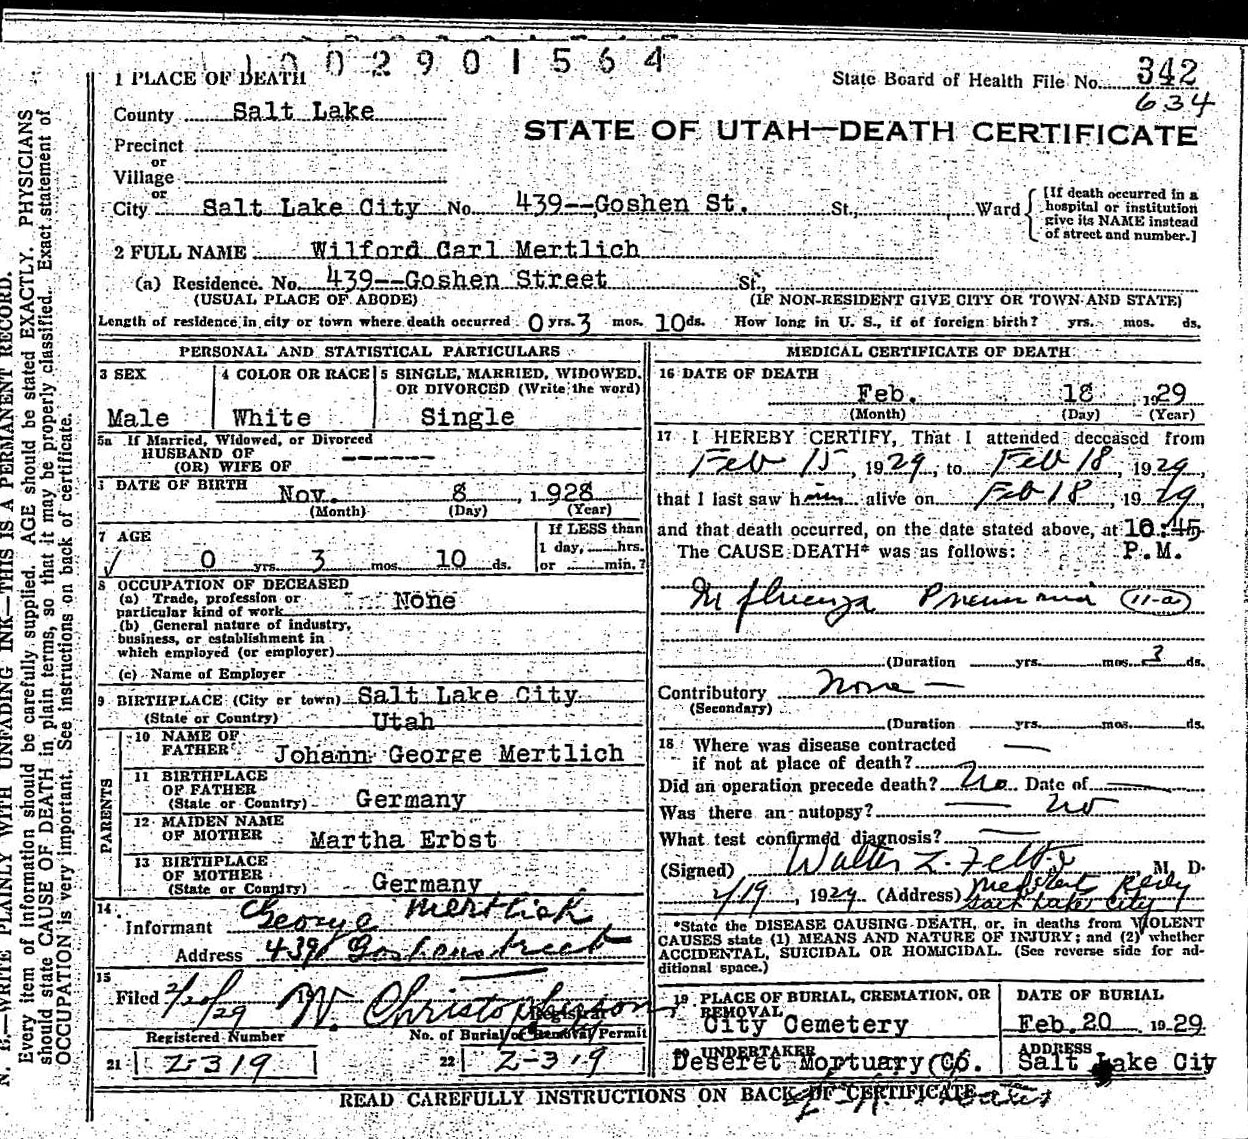 1002901564
1 PLACE OF DEATH
State Board of Health File No. 342
634
County Salt Lake
STATE OF UTAH—DEATH CERTIFICATE
Precinct
or
Village
or
City Salt Lake City No. 439--Goshen St. St., Ward
[If death occurred in a
hospital or institution
give its NAME instead
of street and number.]
2 FULL NAME Wilford Carl Mertlich
(a) Residence. No. 439--Goshen Street St.,
(USUAL PLACE OF ABODE) (IF NON-RESIDENT GIVE CITY OR TOWN AND STATE)
Length of residence in city or town where death occurred 0 yrs. 3 mos. 10 ds. How long in U. S., if of foreign birth? yrs. mos. ds.
PERSONAL AND STATISTICAL PARTICULARS
3 SEX
Male
4 COLOR OR RACE
White
5 SINGLE, MARRIED, WIDOWED,
OR DIVORCED (Write the word)
Single
5a If Married, Widowed, or Divorced
HUSBAND OF
(OR) WIFE OF -------
DATE OF BIRTH
Nov. 8, 1928
(Month) (Day) (Year)
7 AGE
0 yrs. 3 mos. 10 ds.
If LESS than
1 day, hrs.
or min.?
8 OCCUPATION OF DECEASED
(a) Trade, profession or
particular kind of work None
(b) General nature of industry,
business, or establishment in
which employed (or employer)
(c) Name of Employer
9 BIRTHPLACE (City or town) Salt Lake City
(State or Country) Utah
PARENTS
10 NAME OF
FATHER Johann George Mertlich
11 BIRTHPLACE
OF FATHER
(State or Country) Germany
12 MAIDEN NAME
OF MOTHER Martha Erbst
13 BIRTHPLACE
OF MOTHER
(State or Country) Germany
14
Informant George Mertlich
Address 439 Goshen street
15
Filed 2/20/29 19 W. Christopherson
Registrar
Registered Number No. of Burial or Removal Permit
21 2-319 22 2-319
MEDICAL CERTIFICATE OF DEATH
16 DATE OF DEATH
Feb. 18 1929
(Month) (Day) (Year)
17 I HEREBY CERTIFY, That I attended deceased from
Feb 15, 1929, to Feb 18, 1929,
that I last saw him alive on Feb 18, 1929
and that death occurred, on the date stated above, at 10:45
The CAUSE DEATH* was as follows: P.M.
Influenza Pneumonia (11-a)
(Duration yrs. mos. 3 ds.
Contributory None —
(Secondary)
(Duration yrs. mos. ds.
18 Where was disease contracted
if not at place of death? —
Did an operation precede death? No Date of —
Was there an autopsy? — no
What test confirmed diagnosis? —
(Signed) Walter L. M. D.
2/19, 1929 (Address)
Salt Lake City
*State the DISEASE CAUSING DEATH, or, in deaths from VIOLENT
CAUSES state (1) MEANS AND NATURE OF INJURY; and (2) whether
ACCIDENTAL, SUICIDAL OR HOMICIDAL. (See reverse side for ad-
ditional space.)
19 PLACE OF BURIAL, CREMATION, OR
REMOVAL
City Cemetery
DATE OF BURIAL
Feb. 20 1929
20 UNDERTAKER
Deseret Mortuary Co.
ADDRESS
Salt Lake City
READ CAREFULLY INSTRUCTIONS ON BACK OF CERTIFICATE
N. B.—WRITE PLAINLY WITH UNFADING INK—THIS IS A PERMANENT RECORD.
Every item of information should be carefully supplied. AGE should be stated EXACTLY. PHYSICIANS
should state CAUSE OF DEATH in plain terms, so that it may be properly classified. Exact statement of
OCCUPATION is very important. See instructions on back of certificate.